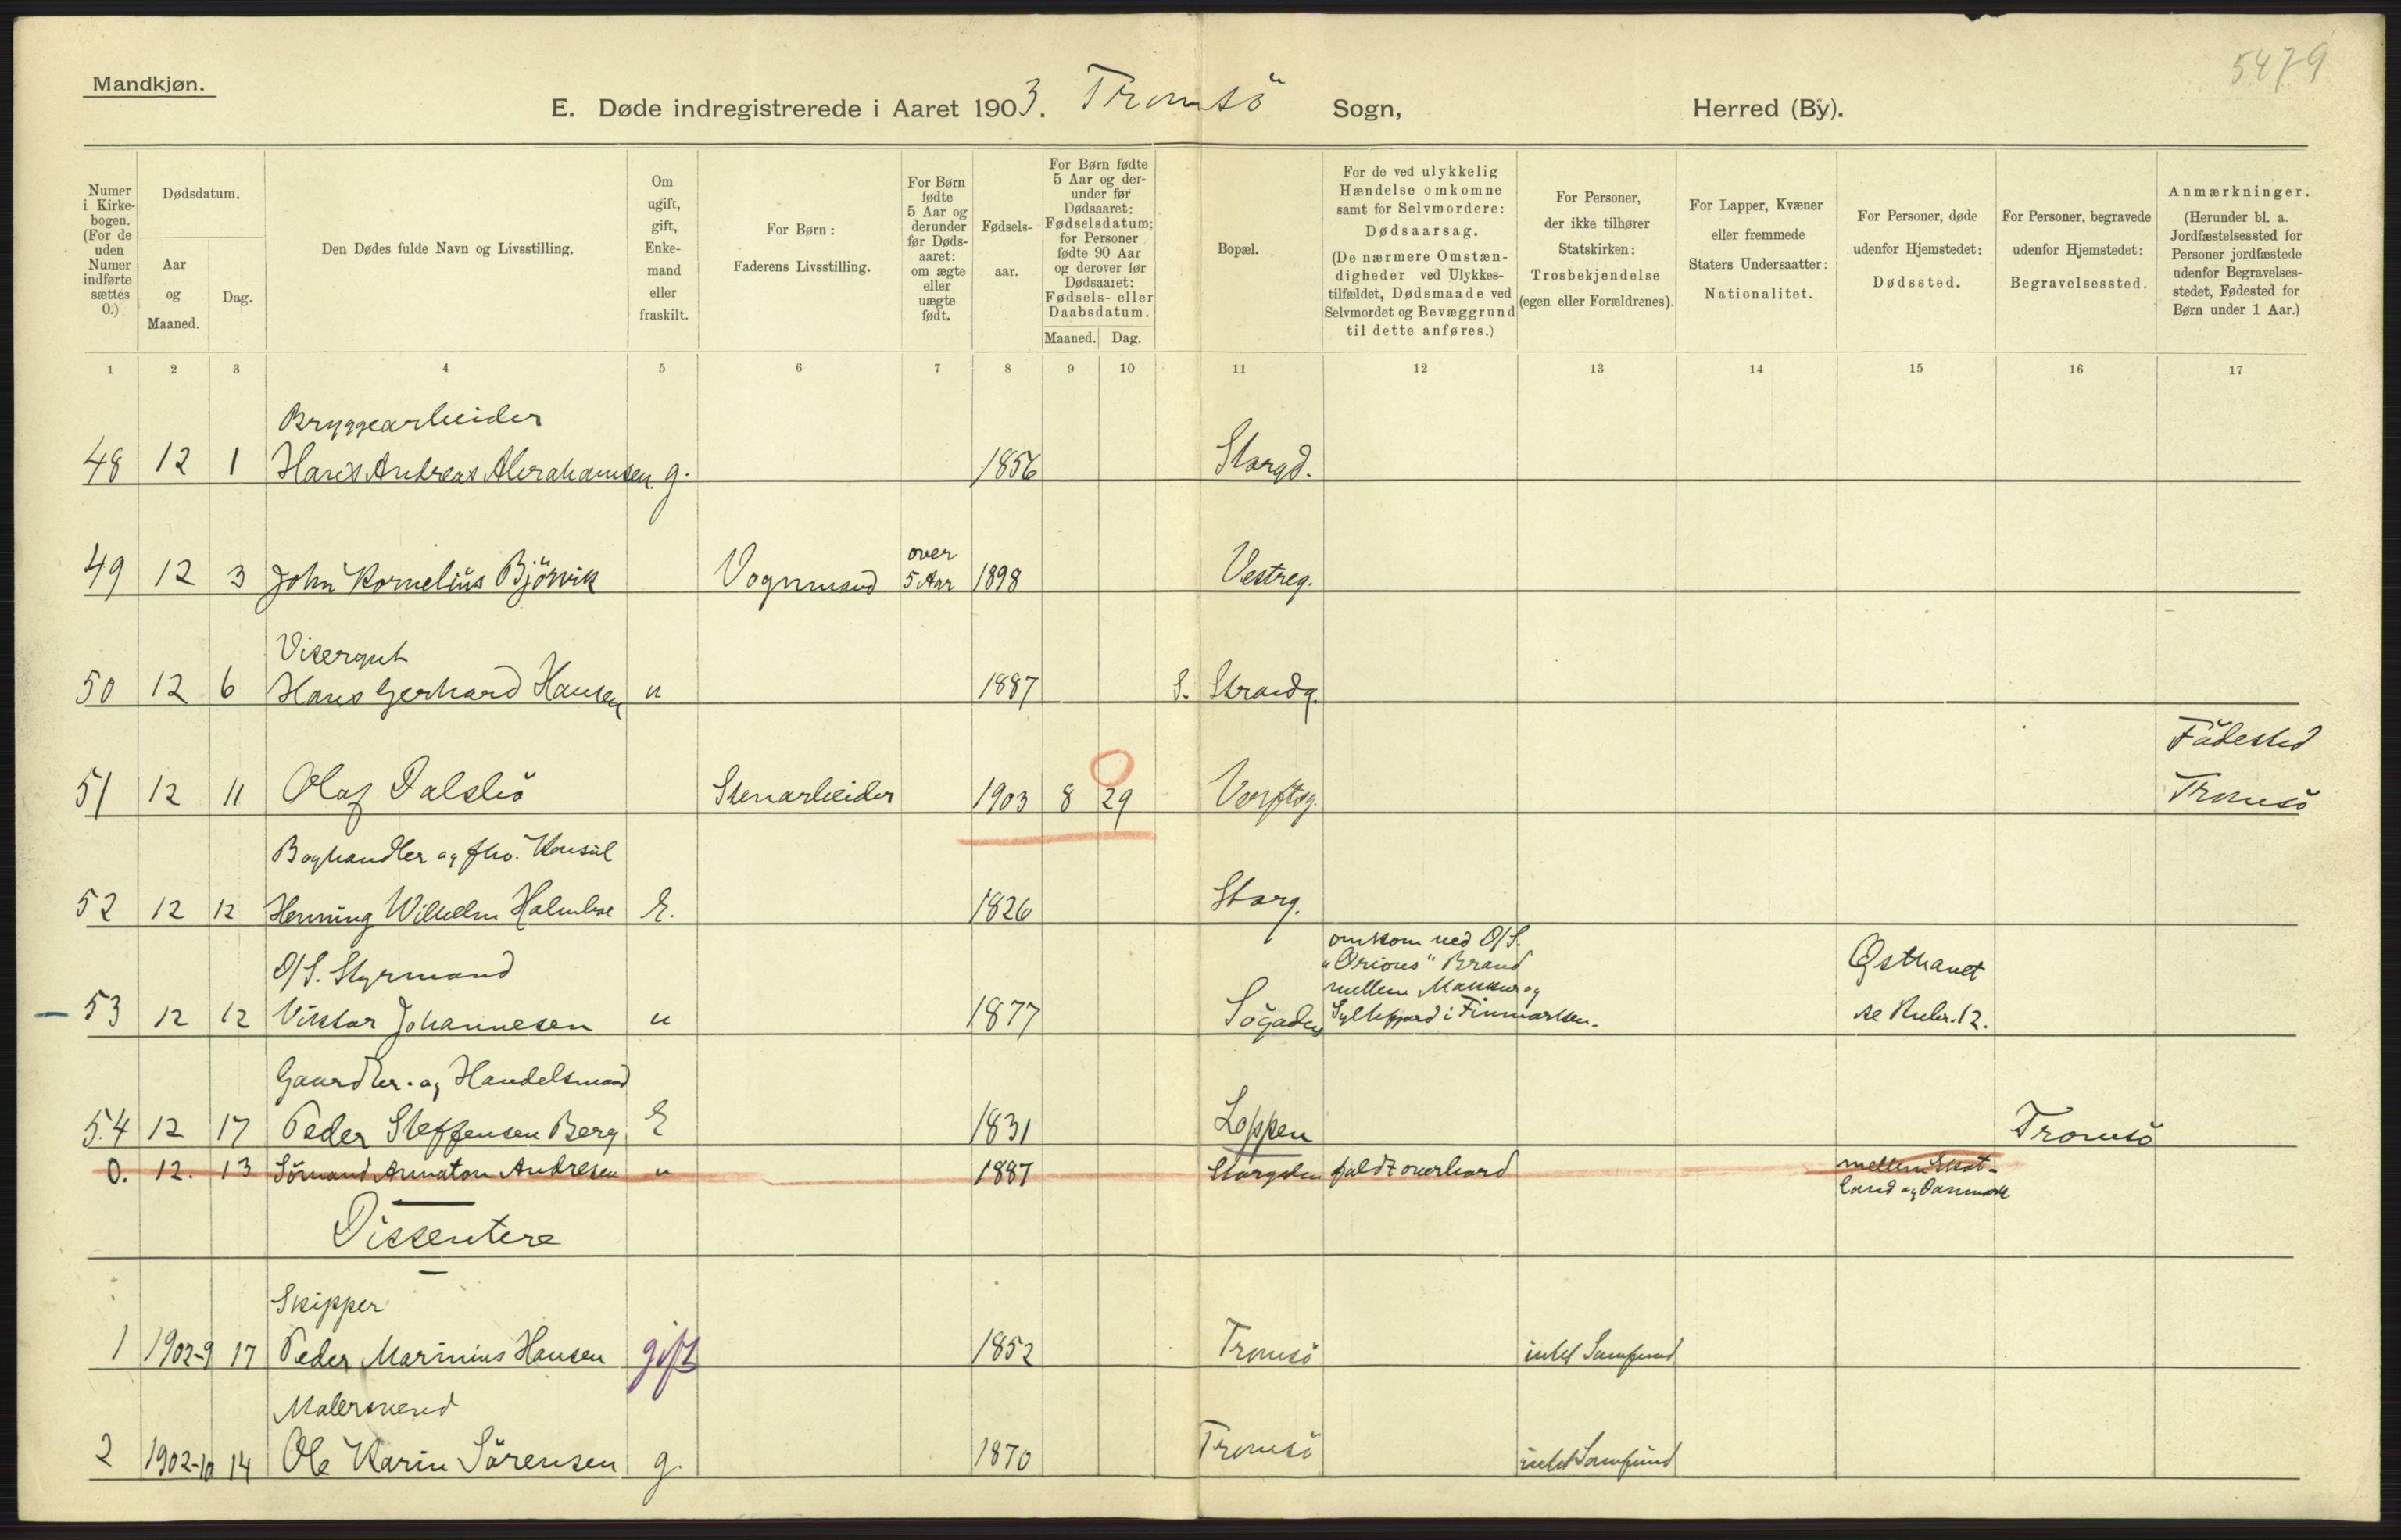 5479
Mandkjøn.
E. Døde indregistrerede i Aaret 1903. Tromsö Sogn, Herred (By).
Numer i Kirkebogen. (For de uden Numer indførte sættes 0.)
Dødsdatum.
Aar og Maaned.
Dag.
Den Dødes fulde Navn og Livsstilling.
Om ugift, gift, Enkemand eller fraskilt.
For Børn: Faderens Livsstilling.
For Børn fødte 5 Aar og derunder før Dødsaaret: om ægte eller uægte født.
Fødselsaar.
For Børn fødte 5 Aar og derunder før Dødsaaret: Fødselsdatum; for Personer fødte 90 Aar og derover før Dødsaaret: Fødsels- eller Daabsdatum.
Maaned. Dag.
Bopæl.
For de ved ulykkelig Hændelse omkomne samt for Selvmordere: Dødsaarsag. (De nærmere Omstændigheder ved Ulykkestilfældet, Dødsmaade ved Selvmordet og Bevæggrund til dette anføres.)
For Personer, der ikke tilhører Statskirken: Trosbekjendelse (egen eller Forældrenes).
For Lapper, Kvæner eller fremmede Staters Undersaatter: Nationalitet.
For Personer, døde udenfor Hjemstedet: Dødssted.
For Personer, begravede udenfor Hjemstedet: Begravelsessted.
Anmærkninger. (Herunder bl. a. Jordfæstelsessted for Personer jordfæstede udenfor Begravelsesstedet, Fødested for Børn under 1 Aar.)
1 2 3 4 5 6 7 8 9 10 11 12 13 14 15 16 17
Bryggearbeider
48 12 1 Hans Andreas Abrahamsen g. 1856 Storgd.
over
49 12 3 John Kornelius Björvik Vognmand 5 Aar 1898 Vestreg.
Visergut
50 12 6 Hans Gerhard Hansen u 1887 S. Strandg.
Födested
51 12 11 Olaf Dalslö Stenarbeider 1903 8 29 Verftsg. Tromsö
Boghandler og fhv. Konsul
52 12 12 Henning Wilhelm Holmboe E. 1826 Storg.
omkom ved D/S.
D/S. Styrmand "Orions" Brand Østhavet
mellem Makkur og
53 12 12 Viktor Johannesen u 1877 Sögaden Syltefjord i Finmarken. se Rubr. 12.
Gaardbr. og Handelsmand
54 12 17 Peder Steffensen Berg E 1831 Loppen Tromsö
0. 12. 13 Sömand Annaton Andresen u 1887 Storgaden faldt overbord mellem Skot-
land og Danmark
Dissentere
Skipper
1 1902-9 17 Peder Marinius Hansen gift 1852 Tromsö Samfund
Malersvend
2 1902-10 14 Ole Karin Sörensen g. 1870 Tromsö Samfund